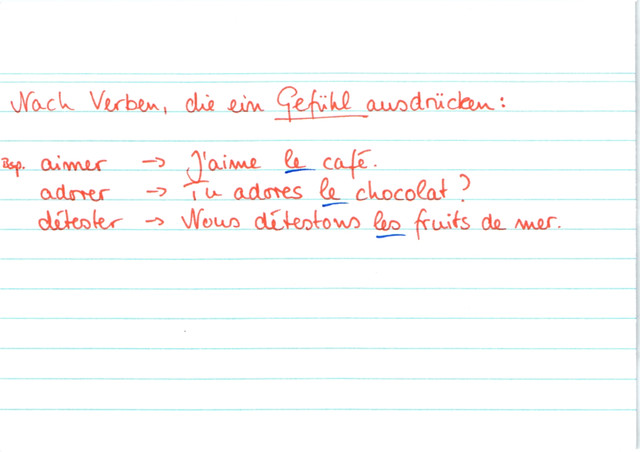 Nach Verben, die ein Gefühl ausdrücken:
Bsp. aimer → J'aime le café.
adorer → Tu adores le chocolat?
détester → Nous détestons les fruits de mer.